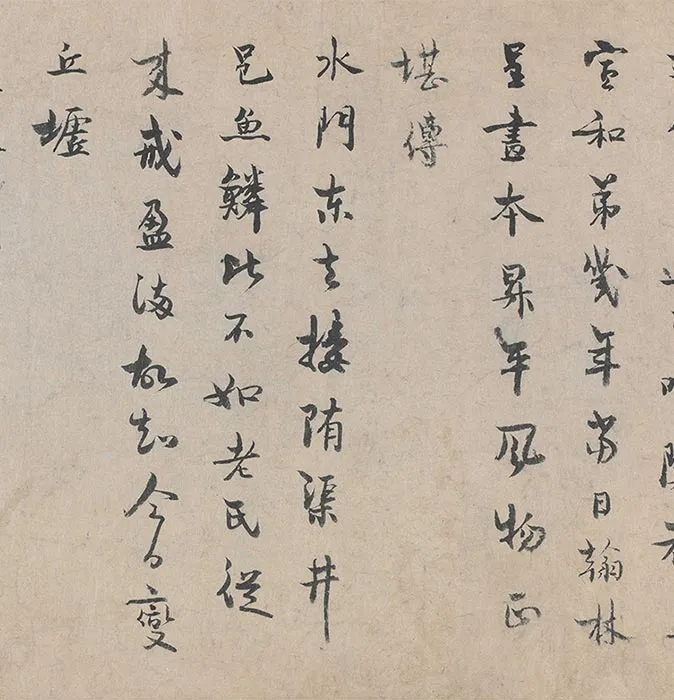 宣和第幾年當日翰林
呈畫本昇平風物正
堪傳
水門東去接隋渠井
邑魚鱗比不如老氏從
來戒盈滿故知今日變
丘墟